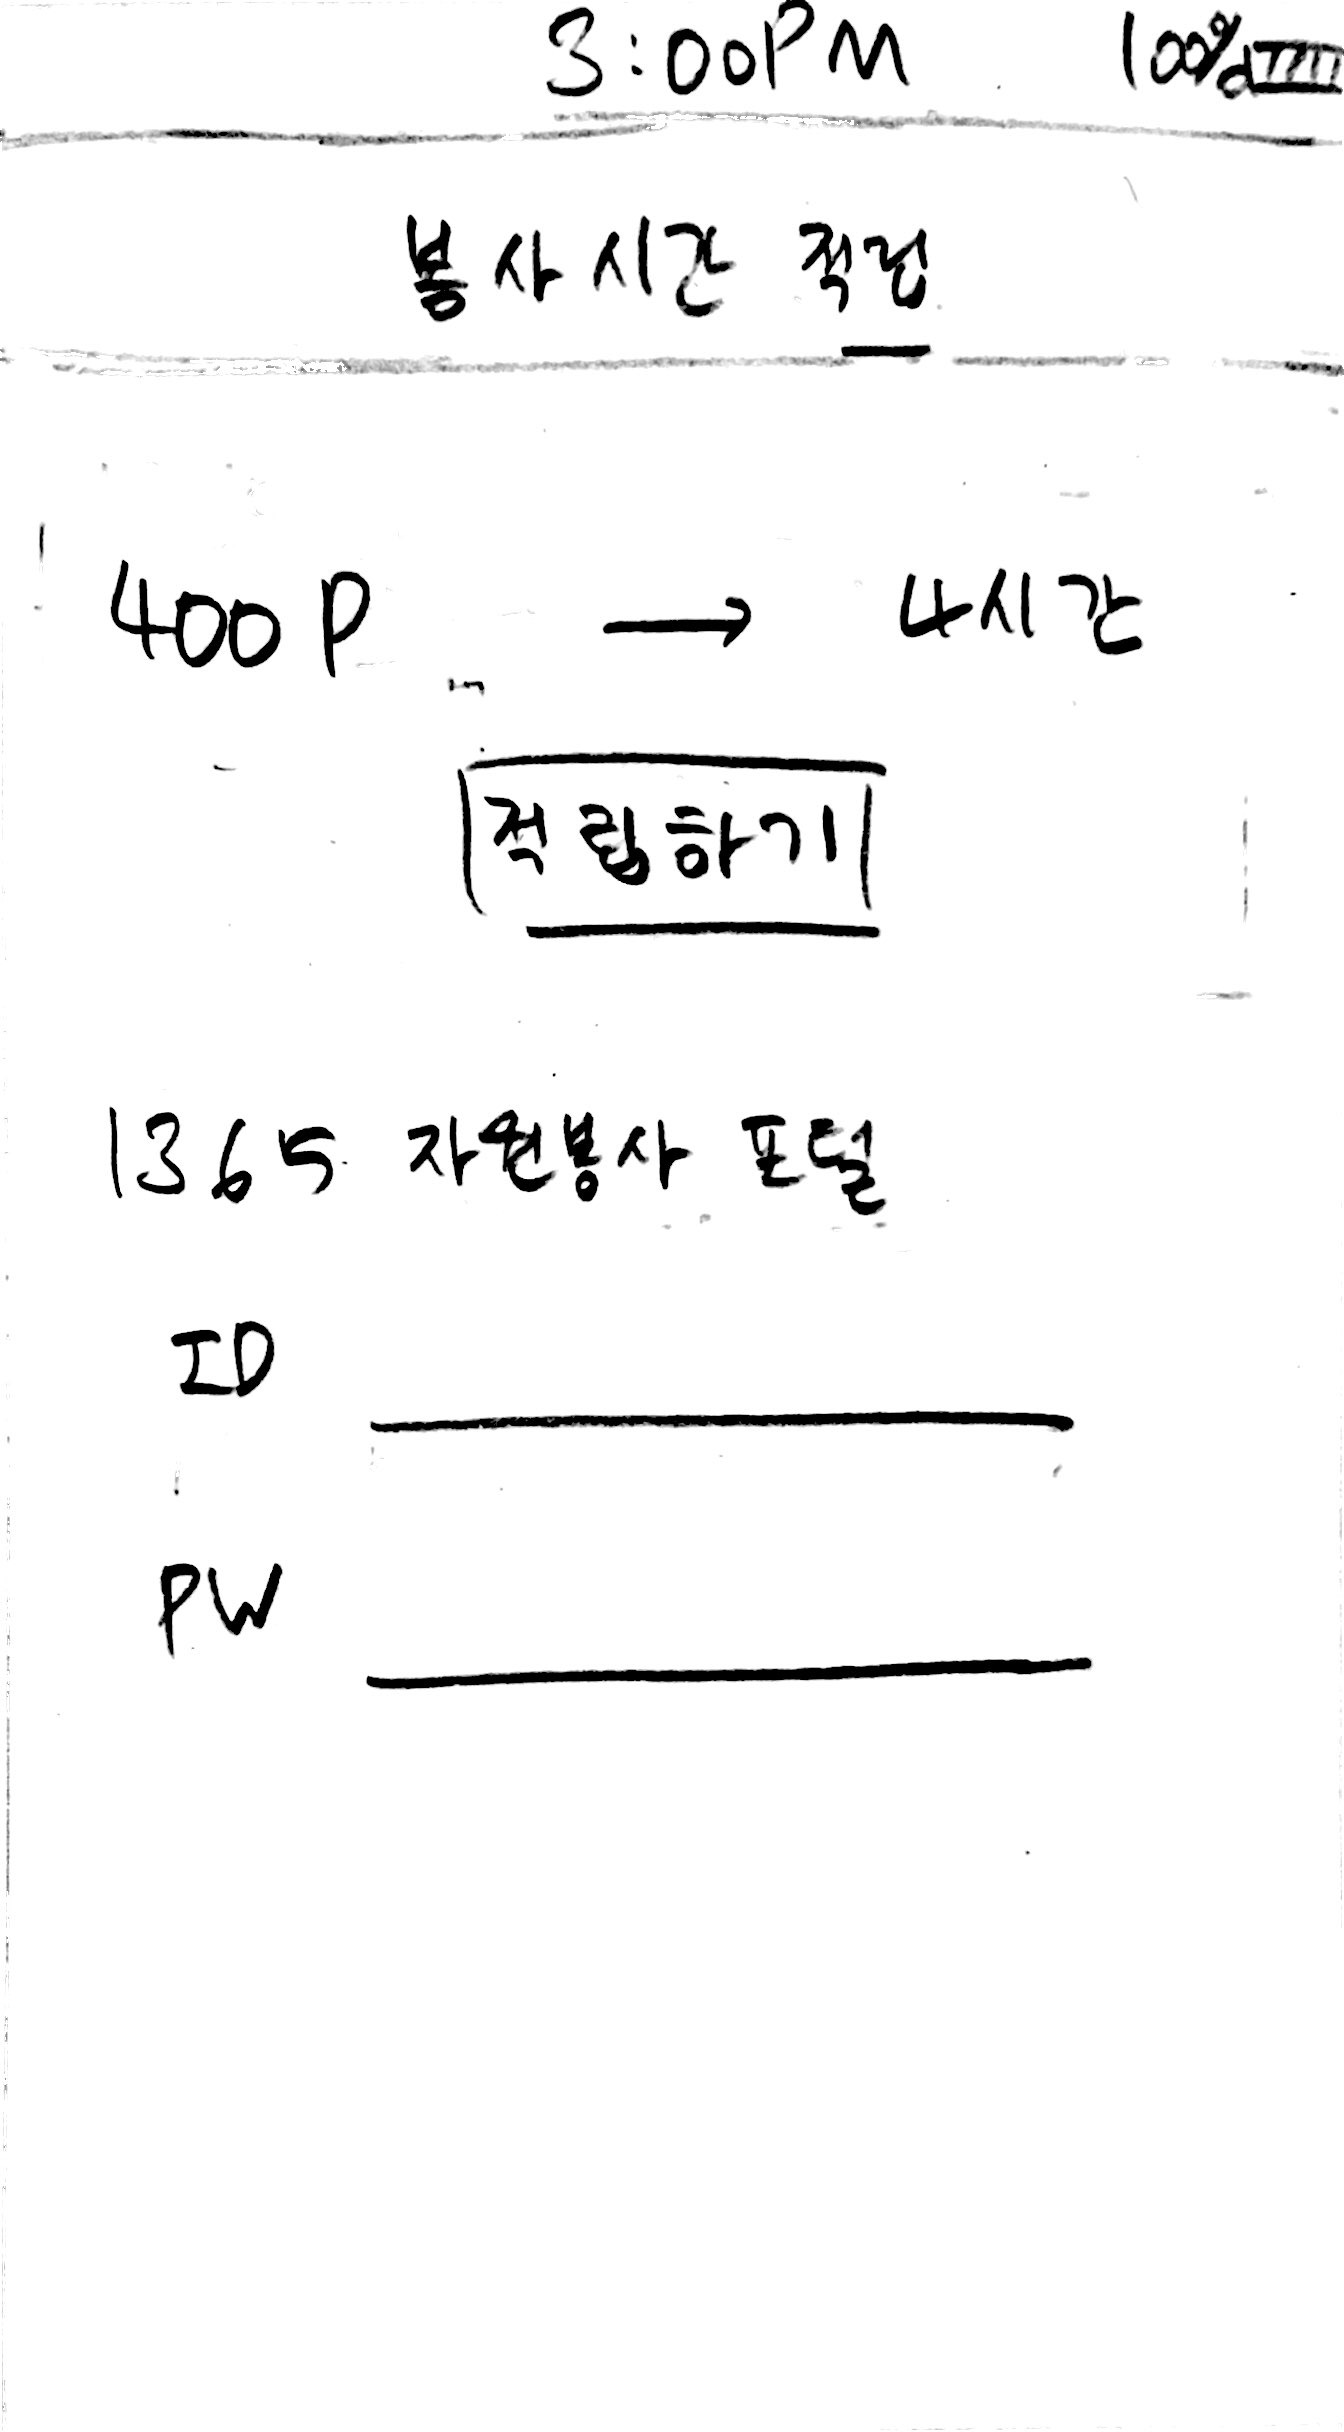 3:00PM 100%
봉사시간 적립
400P → 4시간
적립하기
1365 자원봉사 포털
ID
PW